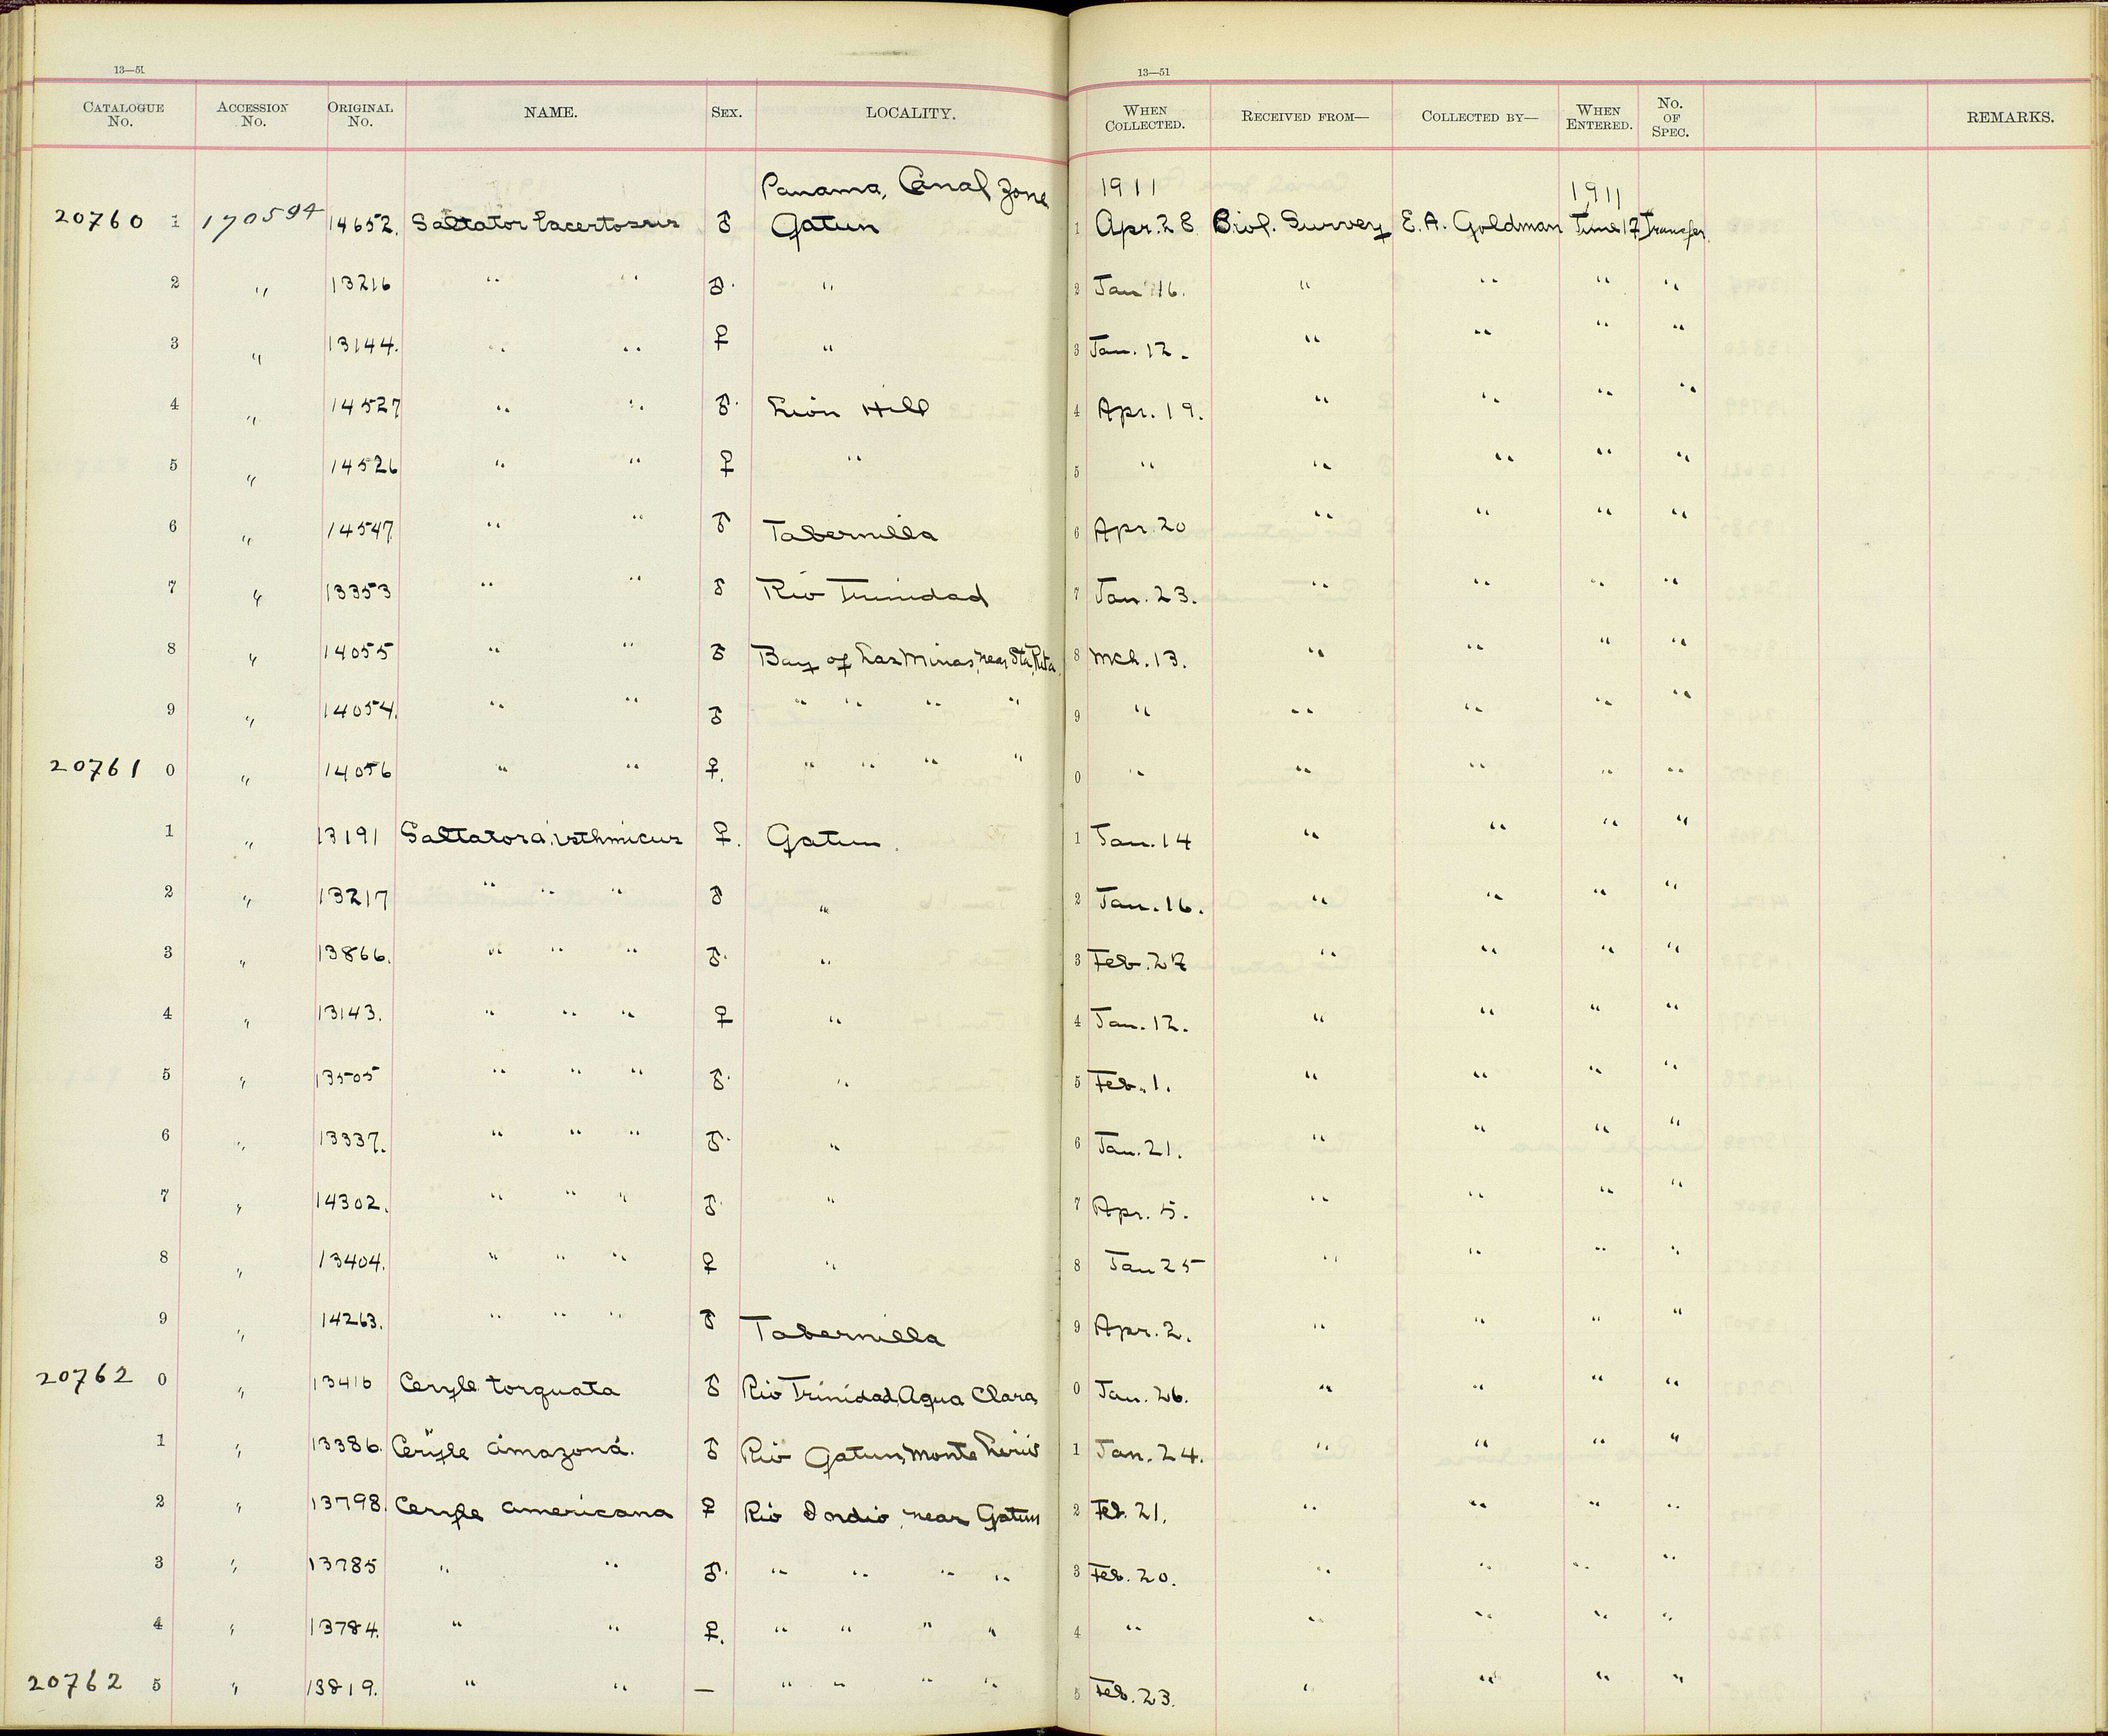 13—51
13—51
CATALOGUE No. ACCESSION No. ORIGINAL No. NAME. SEX. LOCALITY. WHEN COLLECTED. RECEIVED FROM— COLLECTED BY— WHEN ENTERED. No. OF SPEC. REMARKS.
Panama, Canal Zone 1911 1911
20760 1 170594 14652. Saltator lacertosus ♂ Gatun 1 Apr. 28 Biol. Survey E. A. Goldman June 17 Transfer
2 " 13216 " " ♂. " 2 Jan 16. " " " "
3 " 13144. " " ♀ " 3 Jan. 12. " " " "
4 " 14527 " " ♂. Lion Hill 4 Apr. 19. " " " "
5 " 14526 " " ♀ " 5 " " " " "
6 " 14547 " " ♂ Tabernilla 6 Apr. 20 " " " "
7 " 13353 " " ♂ Rio Trinidad 7 Jan. 23. " " " "
8 " 14055 " " ♂ Bay of Las Minas, near Sta. Rita 8 Mch. 13. " " " "
9 " 14054. " " ♂ " " " " 9 " " " " "
20761 0 " 14056 " " ♀. " " " " 0 " " " " "
1 " 13191 Saltator a. isthmicus ♀. Gatun. 1 Jan. 14 " " " "
2 " 13217 " " " ♂ " 2 Jan. 16. " " " "
3 " 13866. " " " ♂. " 3 Feb. 27 " " " "
4 " 13143. " " " ♀ " 4 Jan. 12. " " " "
5 " 13505 " " " ♂. " 5 Feb. 1. " " " "
6 " 13337. " " " ♂. " 6 Jan. 21. " " " "
7 " 14302. " " " ♂. " 7 Apr. 5. " " " "
8 " 13404. " " " ♀ " 8 Jan 25 " " " "
9 " 14263. " " " ♂ Tabernilla 9 Apr. 2. " " " "
20762 0 " 13416 Ceryle torquata ♂ Rio Trinidad, Agua Clara 0 Jan. 26. " " " "
1 " 13386. Ceryle amazona. ♂ Rio Gatun, Monte Lirio 1 Jan. 24. " " " "
2 " 13798. Ceryle americana ♀ Rio Indio, near Gatun 2 Feb. 21. " " " "
3 " 13785 " " ♂. " " " " 3 Feb. 20. " " " "
4 " 13784. " " ♀. " " " " 4 " " " " "
20762 5 " 13819. " " — " " " " 5 Feb. 23. " " " "